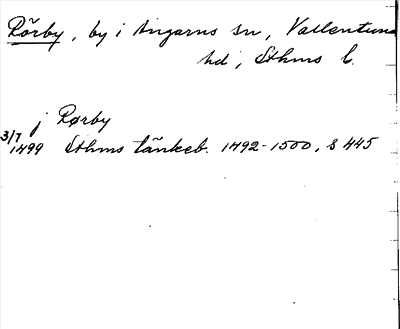 Rörby, by i Angarns sn, Vallentuna
hd, Sthms l.
j Rørby
3/7 1499 Sthms tänkeb. 1492-1500, s 445